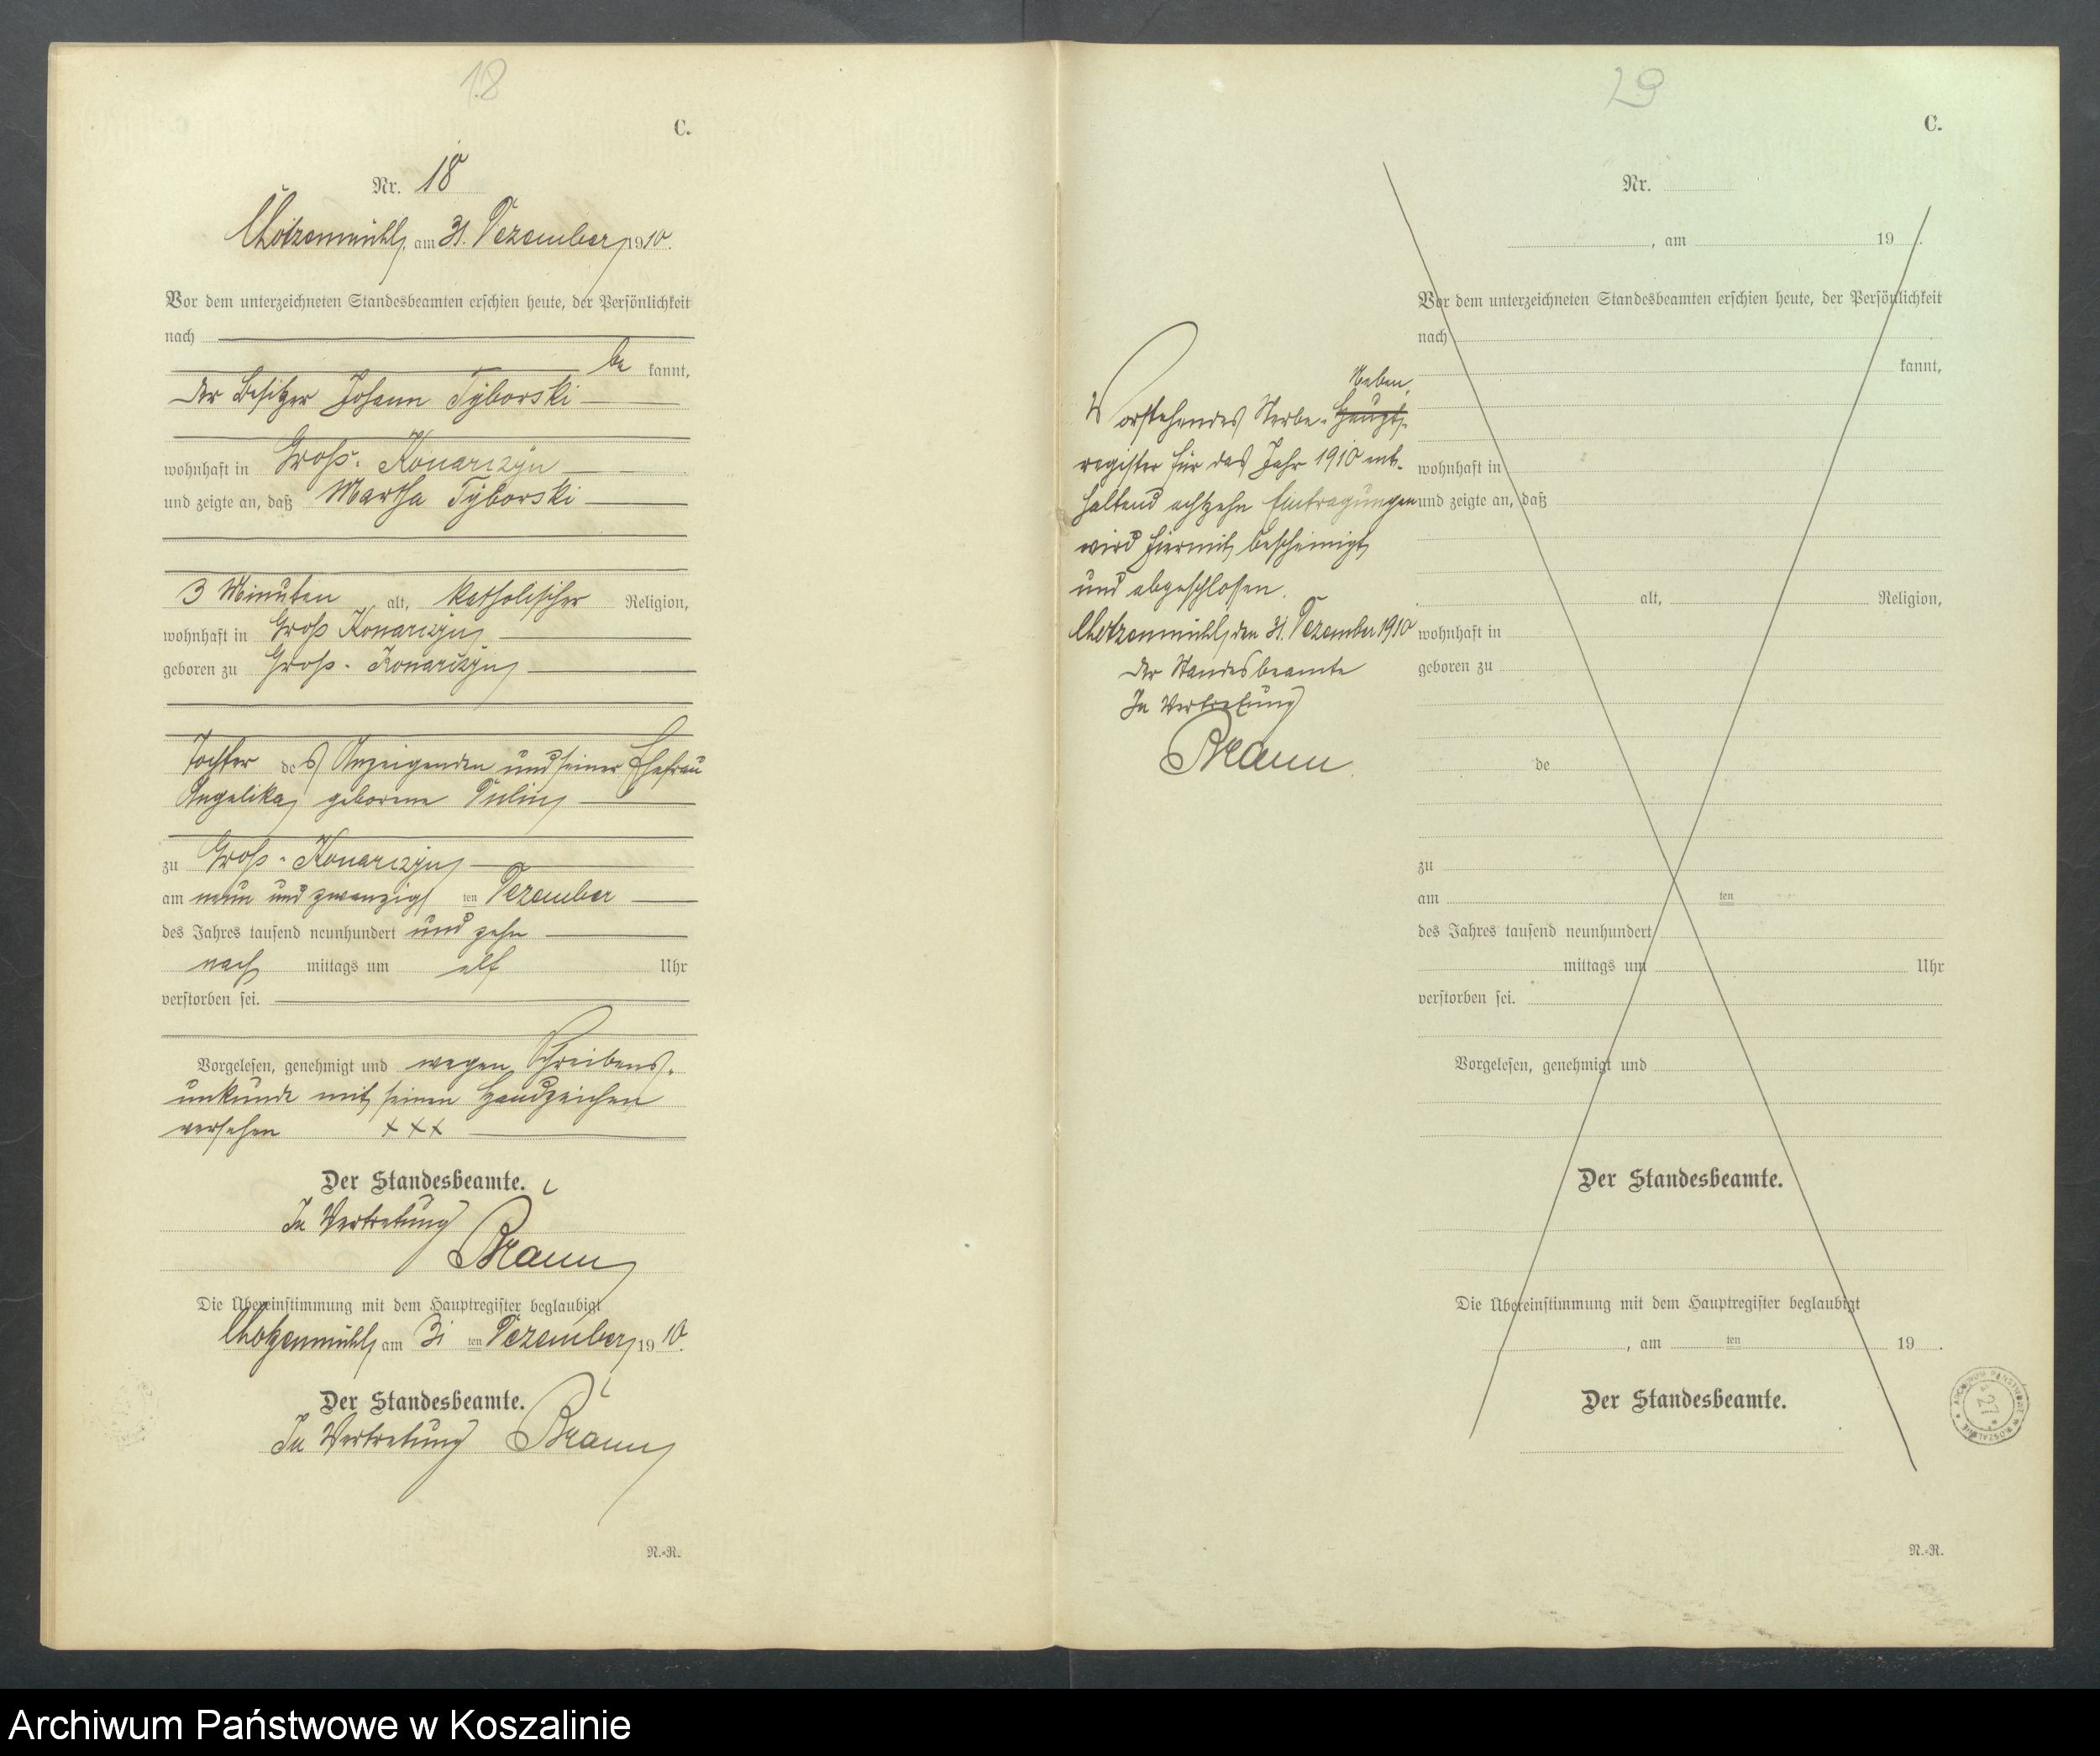 18
C.
Nr. 18
Chotzenmühl, am 31. Dezember 1910.
Vor dem unterzeichneten Standesbeamten erschien heute, der Persönlichkeit
nach
be kannt,
der Besitzer Johann Tyborski
wohnhaft in Groß-Konarczyn
und zeigte an, daß Martha Tyborski
3 Minuten alt, katholischer Religion,
wohnhaft in Groß Konarczyn
geboren zu Groß-Konarczyn
Tochter des Anzeigenden und seiner Ehefrau
Angelika, geborene
zu Groß-Konarczyn
am neun und zwanzigsten Dezember
des Jahres tausend neunhundert und zehn
nach mittags um elf Uhr
verstorben sei.
Vorgelesen, genehmigt und wegen Schreibens-
unkunde mit seinem Handzeichen
versehen +++
Der Standesbeamte.
In Vertretung
Braun
Die Übereinstimmung mit dem Hauptregister beglaubigt
Chotzenmühl, am 31 ten Dezember 1910.
Der Standesbeamte.
In Vertretung Braun
N.-R.
29
C.
Nr.
, am 19 .
Vor dem unterzeichneten Standesbeamten erschien heute, der Persönlichkeit
nach
kannt,
wohnhaft in
und zeigte an, daß
alt, Religion,
wohnhaft in
geboren zu
de
zu
am ten
des Jahres tausend neunhundert
mittags um Uhr
verstorben sei.
Vorgelesen, genehmigt und
Der Standesbeamte.
Die Übereinstimmung mit dem Hauptregister beglaubigt
, am ten 19 .
Der Standesbeamte.
N.-R.
Neben-
Vorstehendes Sterbe-Haupt-
register für das Jahr 1910 ent-
haltend achtzehn Eintragungen
wird hiermit bescheinigt
und abgeschlossen.
Chotzenmühl, den 31. Dezember 1910
Der Standesbeamte
In Vertretung
Braun.
ARCHIWUM PAŃSTWOWE W KOSZALINIE
27
Archiwum Państwowe w Koszalinie